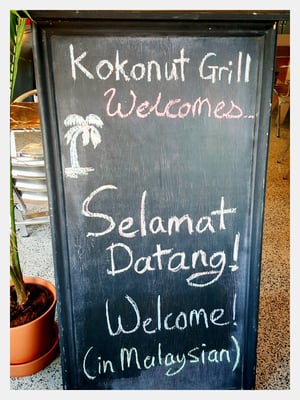 Kokonut Grill
Welcomes...
Selamat
Datang!
Welcome!
(in Malaysian)